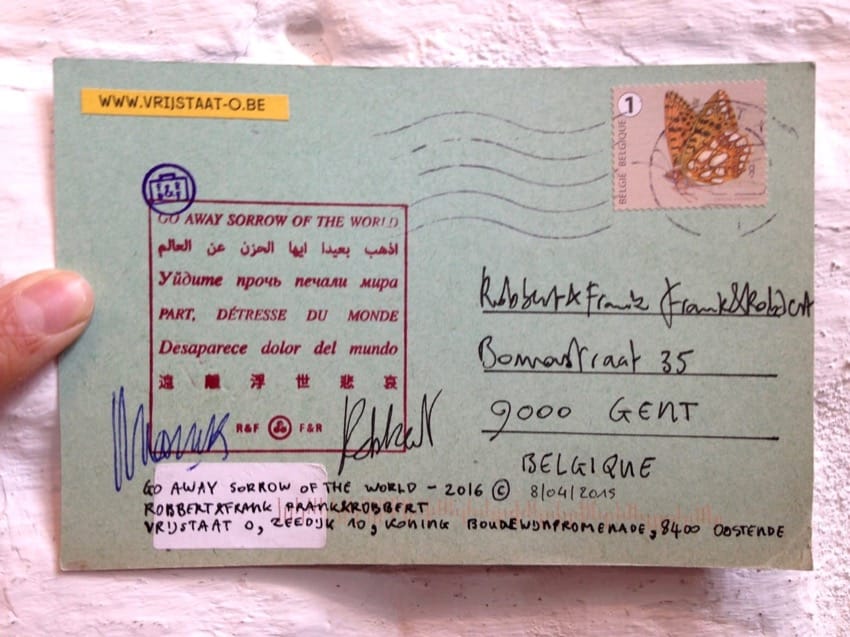 WWW.VRIJSTAAT-O.BE
1
BELGIË BELGIQUE
GO AWAY SORROW OF THE WORLD
اذهب بعيدا ايها الحزن عن العالم
Уйдите прочь печали мира
PART, DÉTRESSE DU MONDE
Desaparece dolor del mundo
遠離浮世悲哀
R&F F&R
Robbert&Frank Frank&Robbert
Bomastraat 35
9000 GENT
BELGIQUE
GO AWAY SORROW OF THE WORLD - 2016 © 8/04/2015
ROBBERT&FRANK FRANK&ROBBERT
VRIJSTAAT O, ZEEDIJK 10, KONING BOUDEWIJNPROMENADE, 8400 OOSTENDE